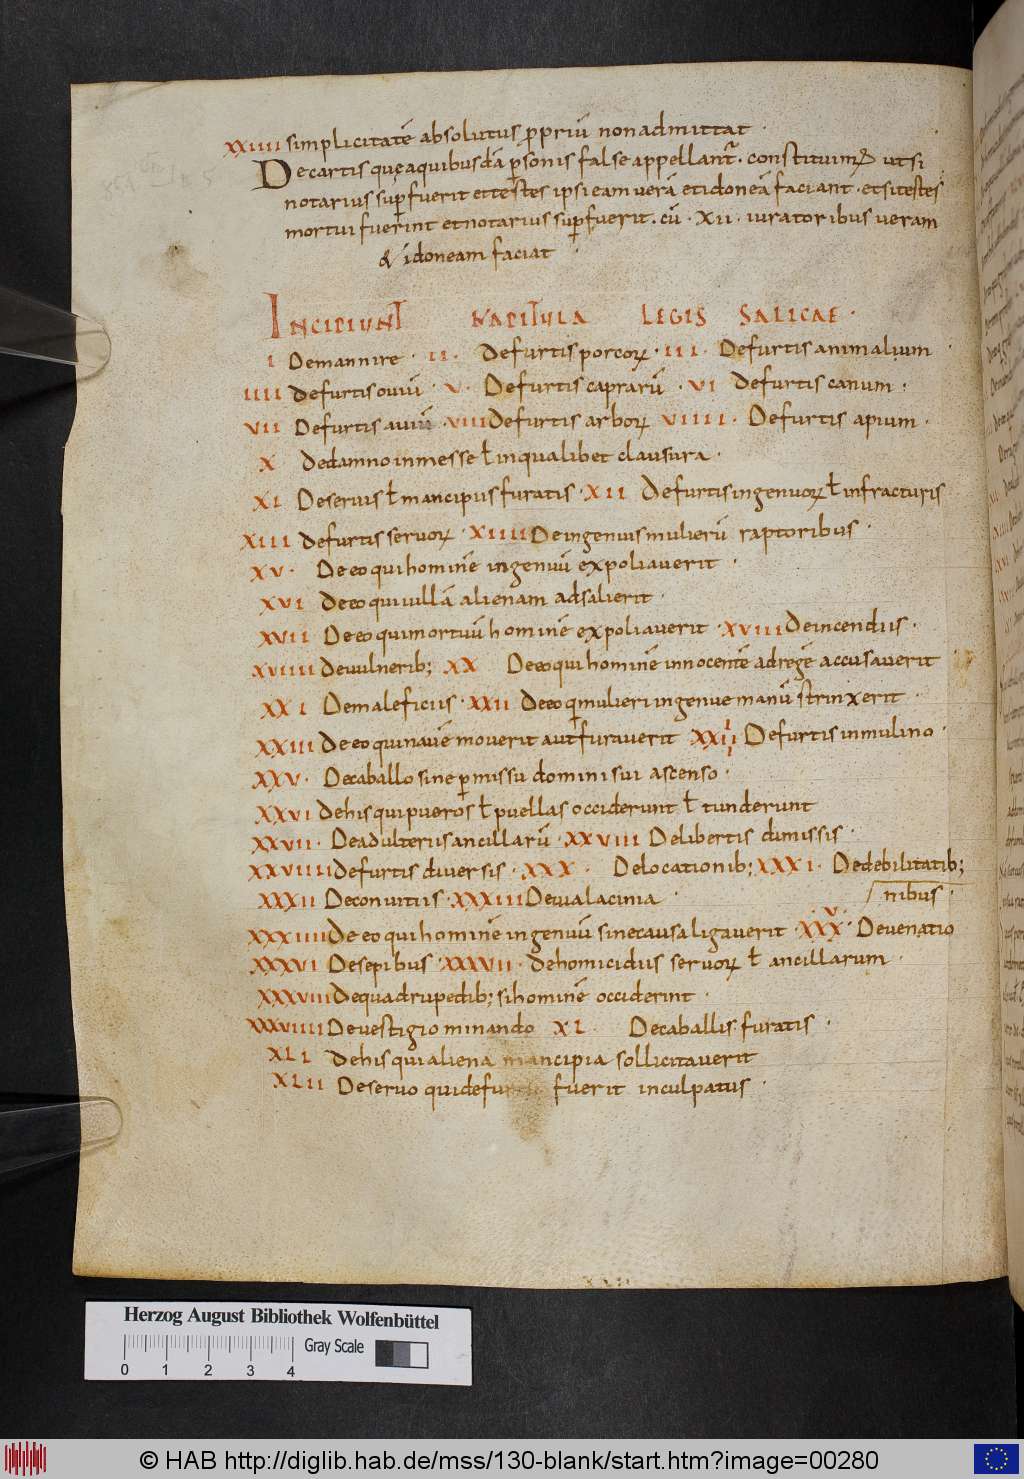 XXIIII simplicitatē absolutus ꝓpriū non admittat ·
De cartis quęaquibusdā ꝑsonis false appellant̄ · constituimꝰ ut si
notarius suꝑfuerit et testes ipsi eam verā et idoneā faciant · et si testes
mortui fuerint et notarius suꝑfuerit · cū · XII · iuratoribus veram
& idoneam faciat ·
INCIPIUNT KAPITULA LEGIS SALICAE ·
I De mannire · II · De furtis porcoꝝ · III · De furtis animalium
IIII De furtis oviū · V · De furtis caprarū · VI De furtis canum ·
VII De furtis aviū · VIII De furtis arboꝝ VIIII · De furtis apium ·
X De damno in messe ł in qualibet clausura ·
XI De servis ł mancipiis furatis · XII De furtis ingenuoꝝ ł infracturis
XIII De furtis servoꝝ · XIIII De ingenuis mulierū raptoribus ·
XV · De eo qui hominē ingenuū expoliaverit ·
XVI De eo qui villā alienam adsalierit ·
XVII De eo qui mortuū hominē expoliaverit · XVIII De incendiis ·
XVIIII De vulnerib; XX De eo qui hominē innocentē ad regē accusaverit
XXI De maleficiis · XXII De eo q mulieri ingenue manū strinxerit ·
XXIII De eo qui navē moverit aut furaverit XXIIII De furtis in mulino ·
XXV · De caballo sine ꝑmissu domini sui ascenso ·
XXVI De his qui pueros ł puellas occiderunt ł tunderunt
XXVII · De adulteriis ancillarū · XXVIII De libertis dimissis ·
XXVIIII De furtis diversis · XXX · De locationib; XXXI · De debilitatib;
XXXII De conviciis · XXXIII De via lacinia · nibus ·
XXXIIII De eo qui hominē ingenuū sine causa ligaverit · XXXV · De venatio
XXXVI De sepibus · XXXVII · De homicidiis servoꝝ ł ancillarum ·
XXXVIII De quadrupedib; si hominē occiderint ·
XXXVIIII De vestigio minando XL · De caballis furatis ·
XLI De his qui aliena mancipia sollicitaverit
XLII De servo qui de fuerit inculpatus ·
Herzog August Bibliothek Wolfenbüttel
Gray Scale
0 1 2 3 4
© HAB http://diglib.hab.de/mss/130-blank/start.htm?image=00280